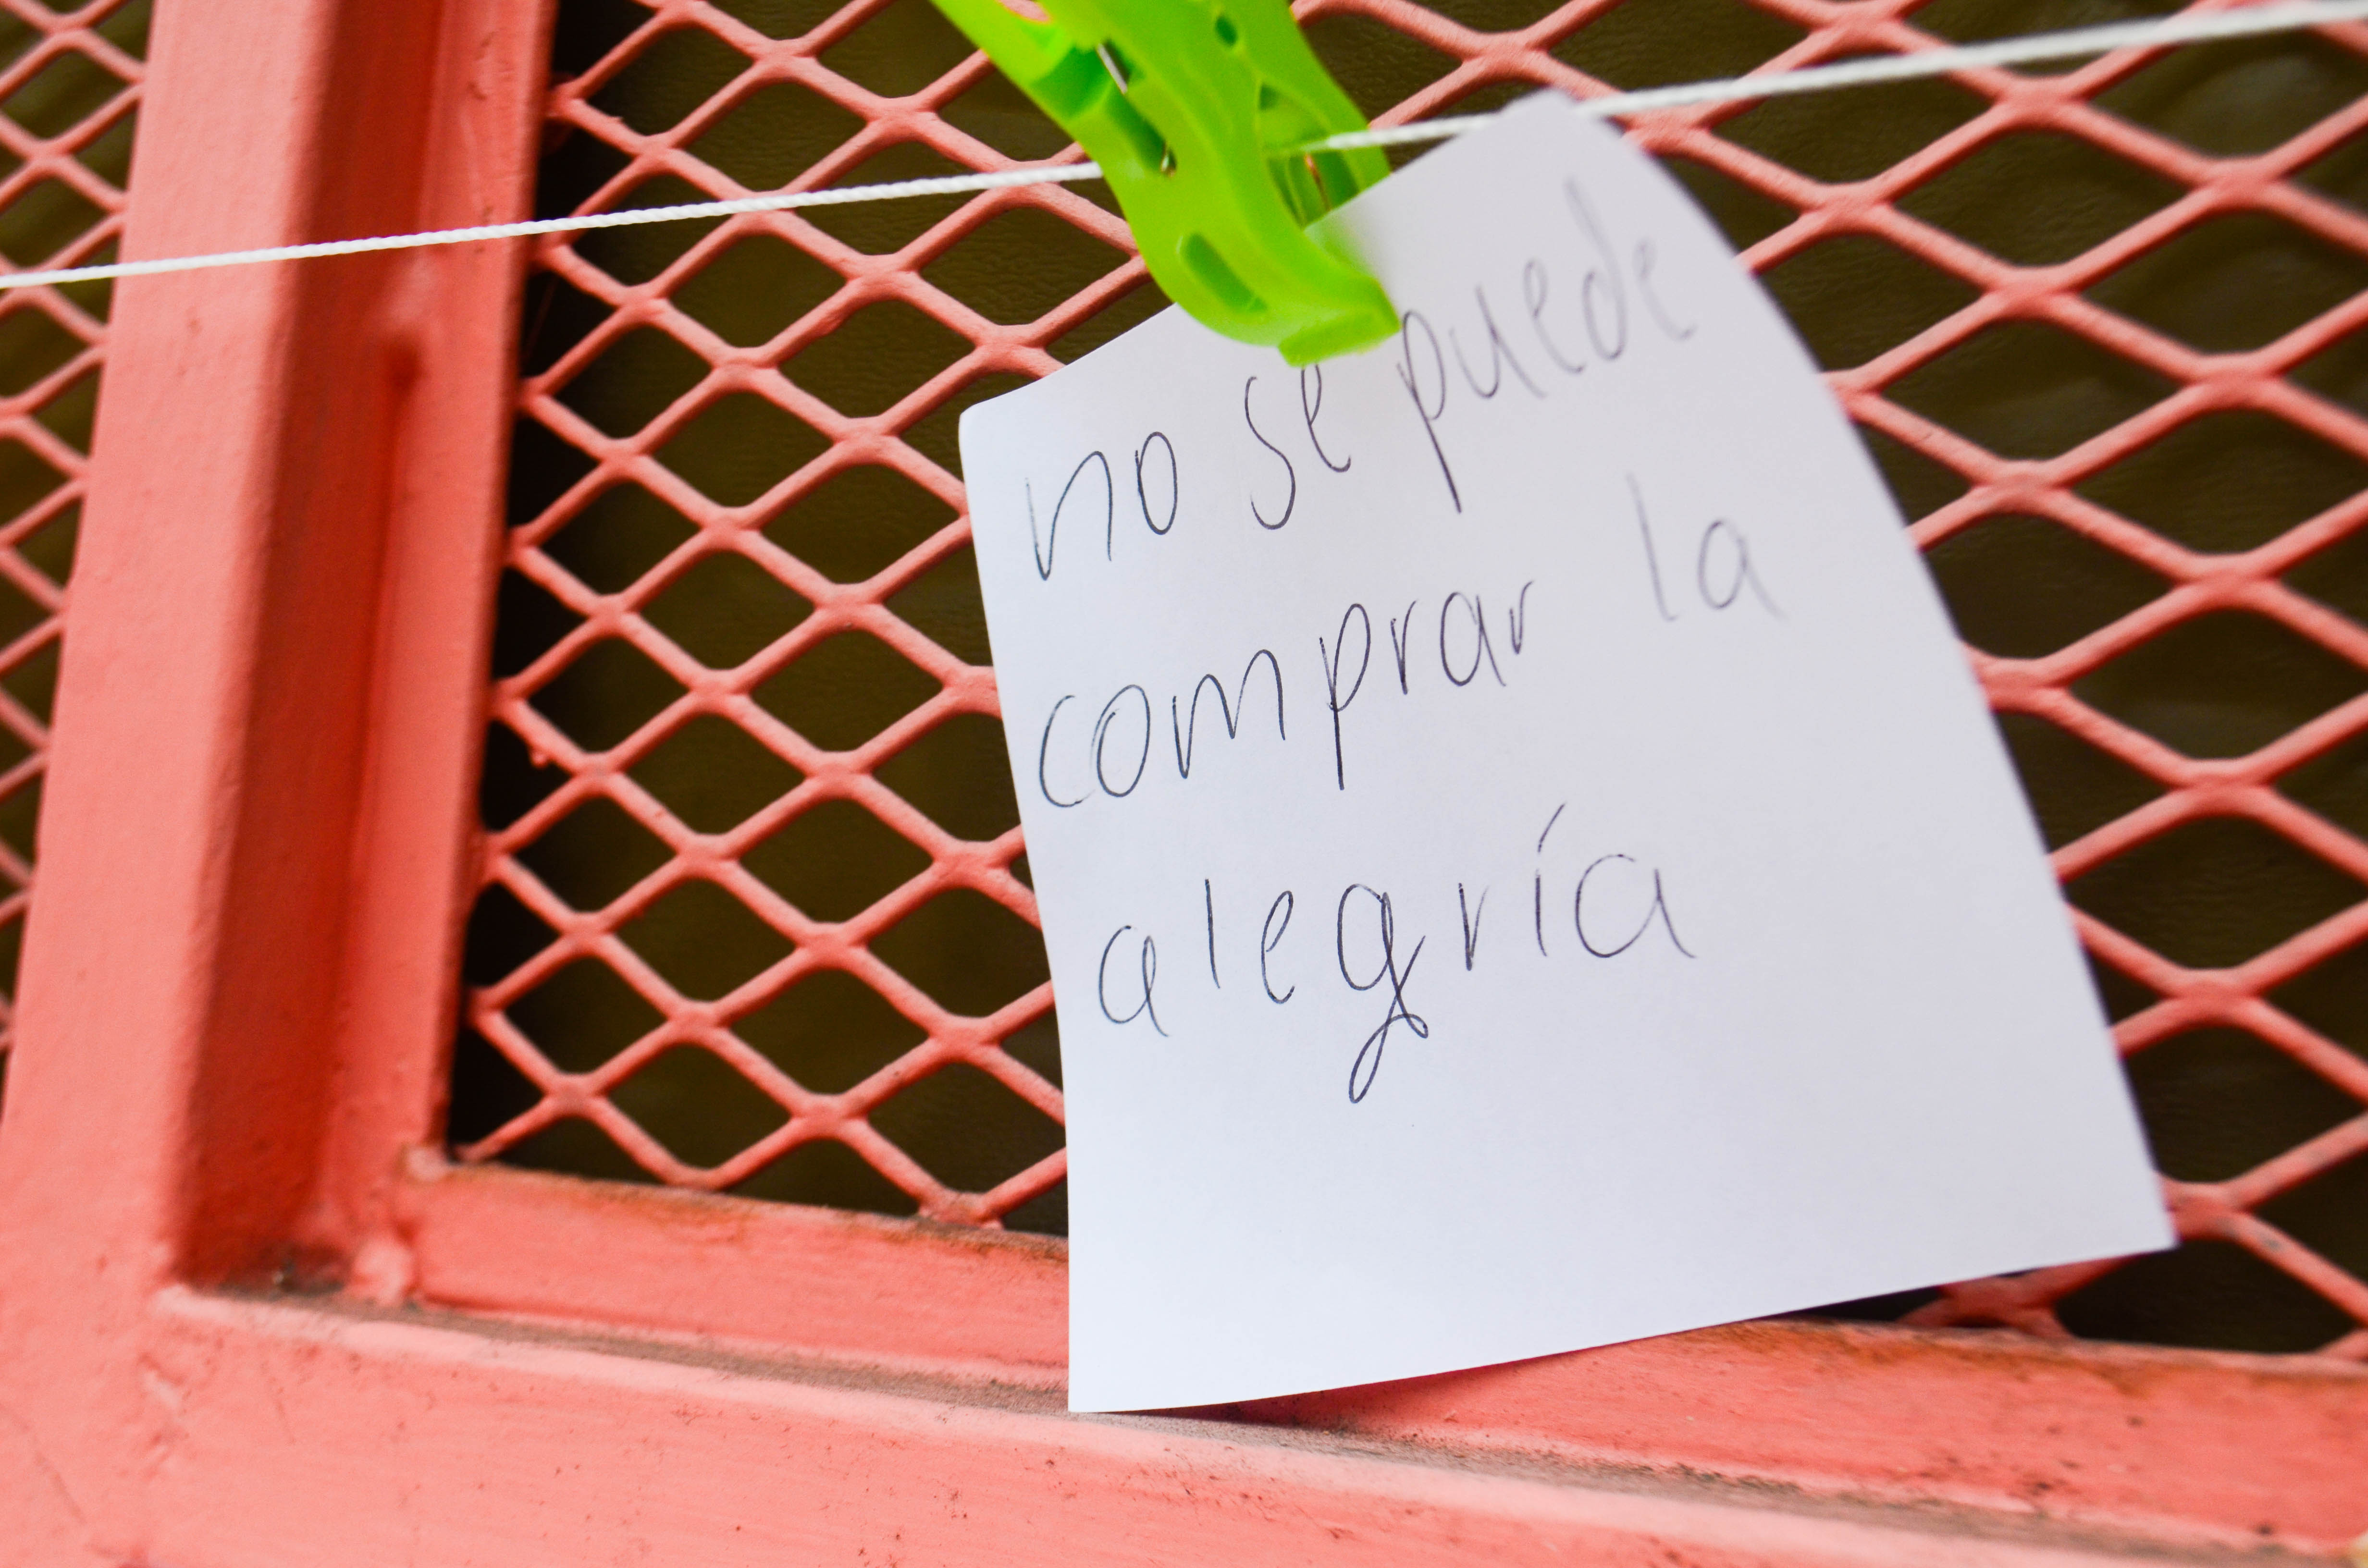 no se puede
comprar la
alegría